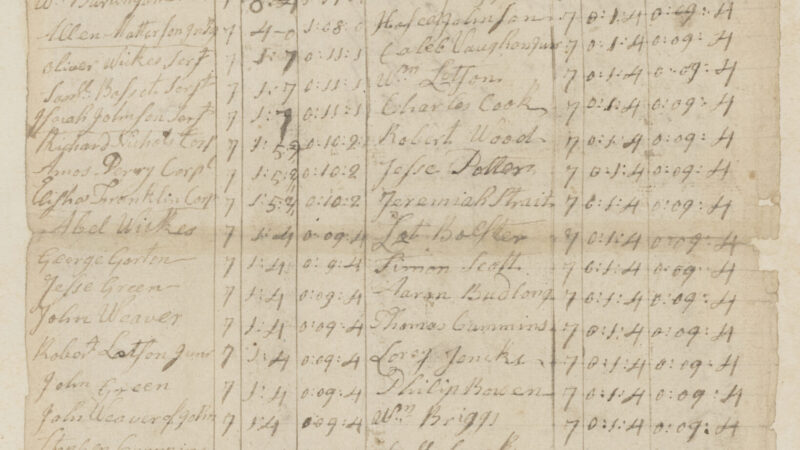 Allen Matterson 7 4-0 1:08:0
Oliver Wickes Serjt 7 1:7 0:11:1
Saml Basset Serjt 7 1:7 0:11:1
Johnson Serjt 7 1:7 0:11:1
Richard Nichols Corp 7 1:5 0:10:2
Amos Perry Corpl 7 1:5 0:10:2
Elisha Franklin Corp 7 1:5 0:10:2
Abel Wickes 7 1:4 0:09:4
George Gorton 7 1:4 0:9:4
Jesse Green 7 1:4 0:09:4
John Weaver 7 1:4 0:09:4
Robert Letson Junr 7 1:4 0:09:4
John Green 7 1:4 0:09:4
John Weaver of John 7 1:4 0:09:4
Johnson 7 0:1:4 0:09:4
Caleb Vaughan Junr 7 0:1:4 0:09:4
Wm Letson 7 0:1:4 0:09:4
Charles Cook 7 0:1:4 0:09:4
Robert Wood 7 0:1:4 0:09:4
Jesse Potter 7 0:1:4 0:09:4
Jeremiah Strait 7 0:1:4 0:09:4
7 0:1:4 0:09:4
Simon Scott 7 0:1:4 0:09:4
Aaron Budlong 7 0:1:4 0:09:4
Thomas Cummins 7 0:1:4 0:09:4
Lory Jencks 7 0:1:4 0:09:4
Philip Bowen 7 0:1:4 0:09:4
Wm Briggs 7 0:1:4 0:09:4